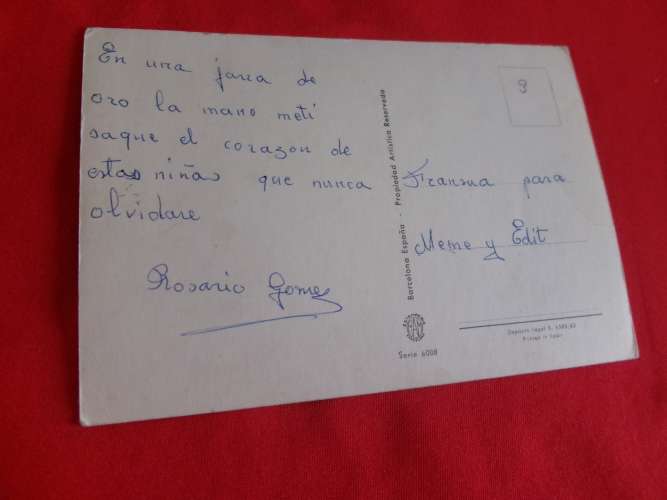 En una jarra de
oro la mano metí
saque el corazon de
estas niñas que nunca
olvidare
Rosario Gomez
Barcelona España - Propiedad Artística Reservada
Serie 6008
3
para
Meme y Edit
Depósito legal B.
Printed in Spain